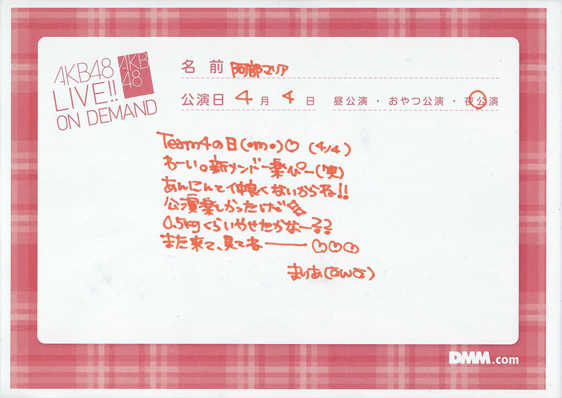 AKB48
LIVE!!
ON DEMAND
AKB
48
名前 阿部マリア
公演日 4月 4日 昼公演・おやつ公演・夜公演
Team4の日(omo)♡ (4/4)
わーい。新メンバー楽ぴー(笑)
あんにんと仲良くないからね!!
公演楽しかったけど
0.5kgくらいやせたかなー??
また来て、見てね——♡♡♡
まりあ(δωδ)
DMM.com